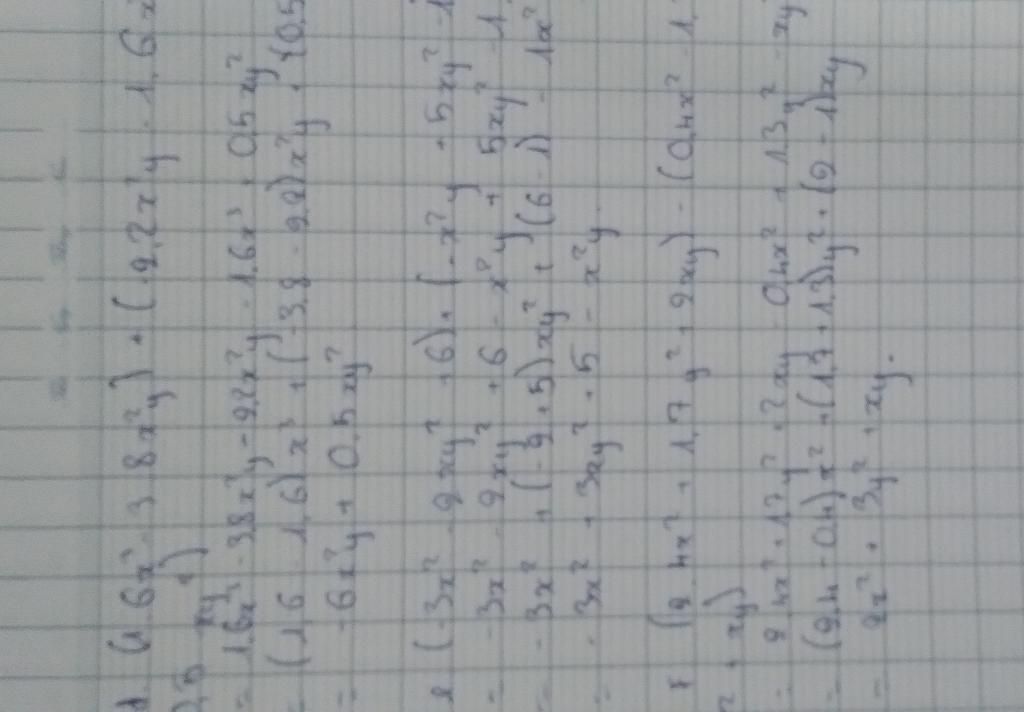 d. (1,6x³ - 3,8x²y) + (-2,2x²y - 1,6x
0,5 xy²)
= 1,6x³ - 3,8x²y - 2,2x²y - 1,6x³ + 0,5xy²
= (1,6 - 1,6)x³ + (-3,8 - 2,2)x²y + (0,5
= -6x²y + 0,5xy²
e (-3x² - 2xy² + 6) + (-x²y + 5xy² - 1
= -3x² - 2xy² + 6 - x²y + 5xy² - 1
= -3x² + (-2 + 5)xy² + (6 - 1) - 1x²
= -3x² + 3xy² + 5 - x²y.
f (2,4x² + 1,7y² + 2xy) - (0,4x² - 1,
² + xy)
= 2,4x² + 1,7y² + 2xy - 0,4x² + 1,3y² - xy
= (2,4 - 0,4)x² + (1,7 + 1,3)y² + (2 - 1)xy
= 2x² + 3y² + xy.